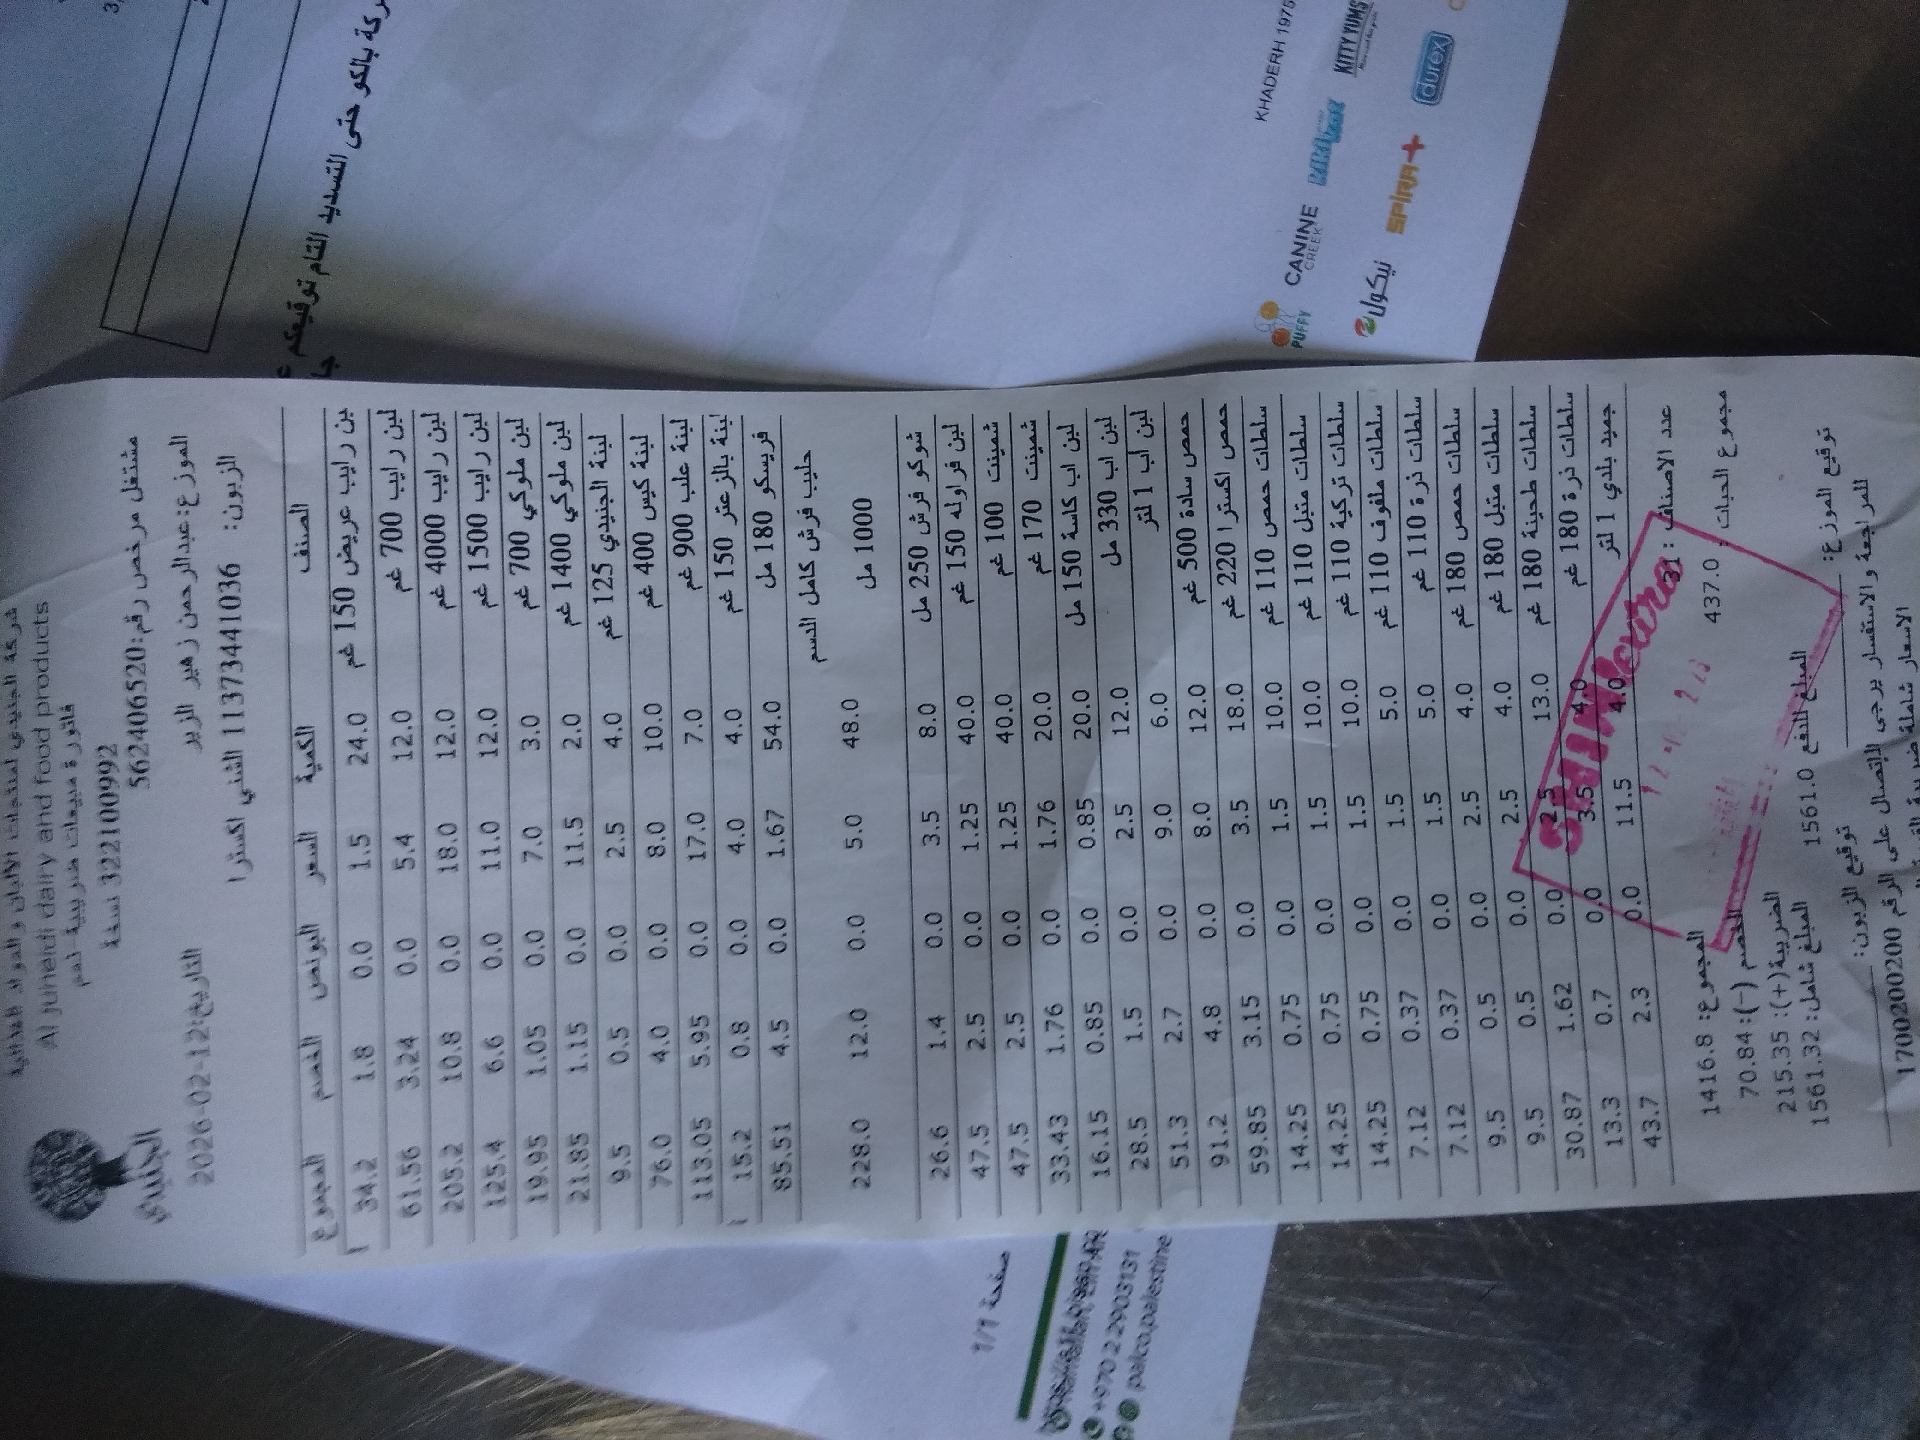 شركة الجنيدي لمنتجات الالبان و المواد الغذائية
Al juneidi dairy and food products
فاتورة مبيعات ضريبية- نعم
3221100992 نسخة
الجنيدي
مشتغل مرخص رقم:562406520
الموزع:عبدالرحمن زهير الزير
التاريخ:2026-02-12
الزبون: 11373441036 الشني اكسترا
الصنف الكمية السعر البونص الخصم المجموع
بن رايب عريض 150 غم 24.0 1.5 0.0 1.8 34.2
لبن رايب 700 غم 12.0 5.4 0.0 3.24 61.56
لبن رايب 4000 غم 12.0 18.0 0.0 10.8 205.2
لبن رايب 1500 غم 12.0 11.0 0.0 6.6 125.4
لبن ملوكي 700 غم 3.0 7.0 0.0 1.05 19.95
لبن ملوكي 1400 غم 2.0 11.5 0.0 1.15 21.85
لبنة الجنيدي 125 غم 4.0 2.5 0.0 0.5 9.5
لبنة كيس 400 غم 10.0 8.0 0.0 4.0 76.0
لبنة علب 900 غم 7.0 17.0 0.0 5.95 113.05
لبنة بالزعتر 150 غم 4.0 4.0 0.0 0.8 15.2
فريسكو 180 مل 54.0 1.67 0.0 4.5 85.51
حليب فرش كامل الدسم
1000 مل 48.0 5.0 0.0 12.0 228.0
شوكو فرش 250 مل 8.0 3.5 0.0 1.4 26.6
لبن فراوله 150 غم 40.0 1.25 0.0 2.5 47.5
شمينت 100 غم 40.0 1.25 0.0 2.5 47.5
شمينت 170 غم 20.0 1.76 0.0 1.76 33.43
لبن اب كاسة 150 مل 20.0 0.85 0.0 0.85 16.15
لبن اب 330 مل 12.0 2.5 0.0 1.5 28.5
لبن اب 1 لتر 6.0 9.0 0.0 2.7 51.3
حمص سادة 500 غم 12.0 8.0 0.0 4.8 91.2
حمص اكسترا 220 غم 18.0 3.5 0.0 3.15 59.85
سلطات حمص 110 غم 10.0 1.5 0.0 0.75 14.25
سلطات متبل 110 غم 10.0 1.5 0.0 0.75 14.25
سلطات تركية 110 غم 10.0 1.5 0.0 0.75 14.25
سلطات ملفوف 110 غم 5.0 1.5 0.0 0.37 7.12
سلطات ذرة 110 غم 5.0 1.5 0.0 0.37 7.12
سلطات حمص 180 غم 4.0 2.5 0.0 0.5 9.5
سلطات متبل 180 غم 4.0 2.5 0.0 0.5 9.5
سلطات طحينة 180 غم 13.0 2.5 0.0 1.62 30.87
سلطات ذرة 180 غم 4.0 3.5 0.0 0.7 13.3
جميد بلدي 1 لتر 4.0 11.5 0.0 2.3 43.7
عدد الاصناف : 31
المجموع: 1416.8
مجموع الحبات : 437.0
الخصم (-): 70.84
الضريبة(+): 215.35
المبلغ شامل: 1561.32
المبلغ للدفع 1561.0
توقيع الموزع:
توقيع الزبون:
للمراجعة والاستفسار يرجى الاتصال على الرقم 1700200200
الاسعار شاملة ضريبة
SHINI extra
ركة بالكو حتى التسديد التام توقيعكم
KHADERH 1975
PUFFY
CANINE
CREEK
KITTY YUMS
نيكول
SPIRA+
durex
صفحة 1/1
+970 2 2903131
palco.palestine